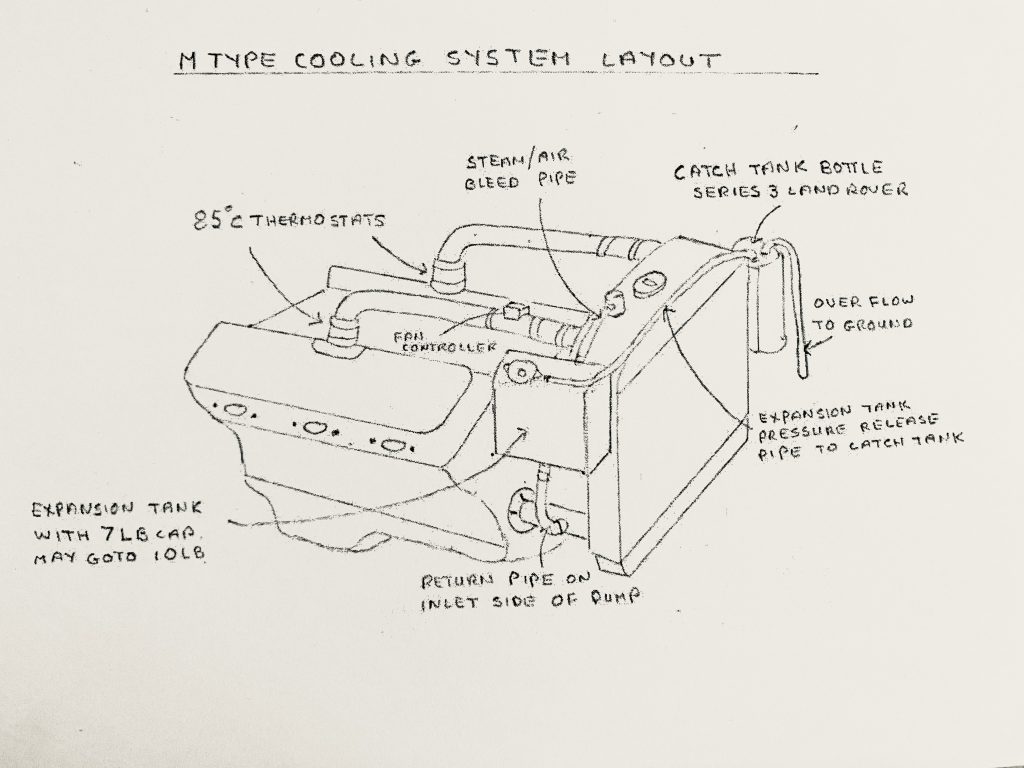 M TYPE COOLING SYSTEM LAYOUT
STEAM/AIR
BLEED PIPE
CATCH TANK BOTTLE
SERIES 3 LAND ROVER
85°C THERMOSTATS
OVER FLOW
TO GROUND
FAN
CONTROLLER
EXPANSION TANK
PRESSURE RELEASE
PIPE TO CATCH TANK
EXPANSION TANK
WITH 7 LB CAP.
MAY GOTO 10LB
RETURN PIPE ON
INLET SIDE OF PUMP